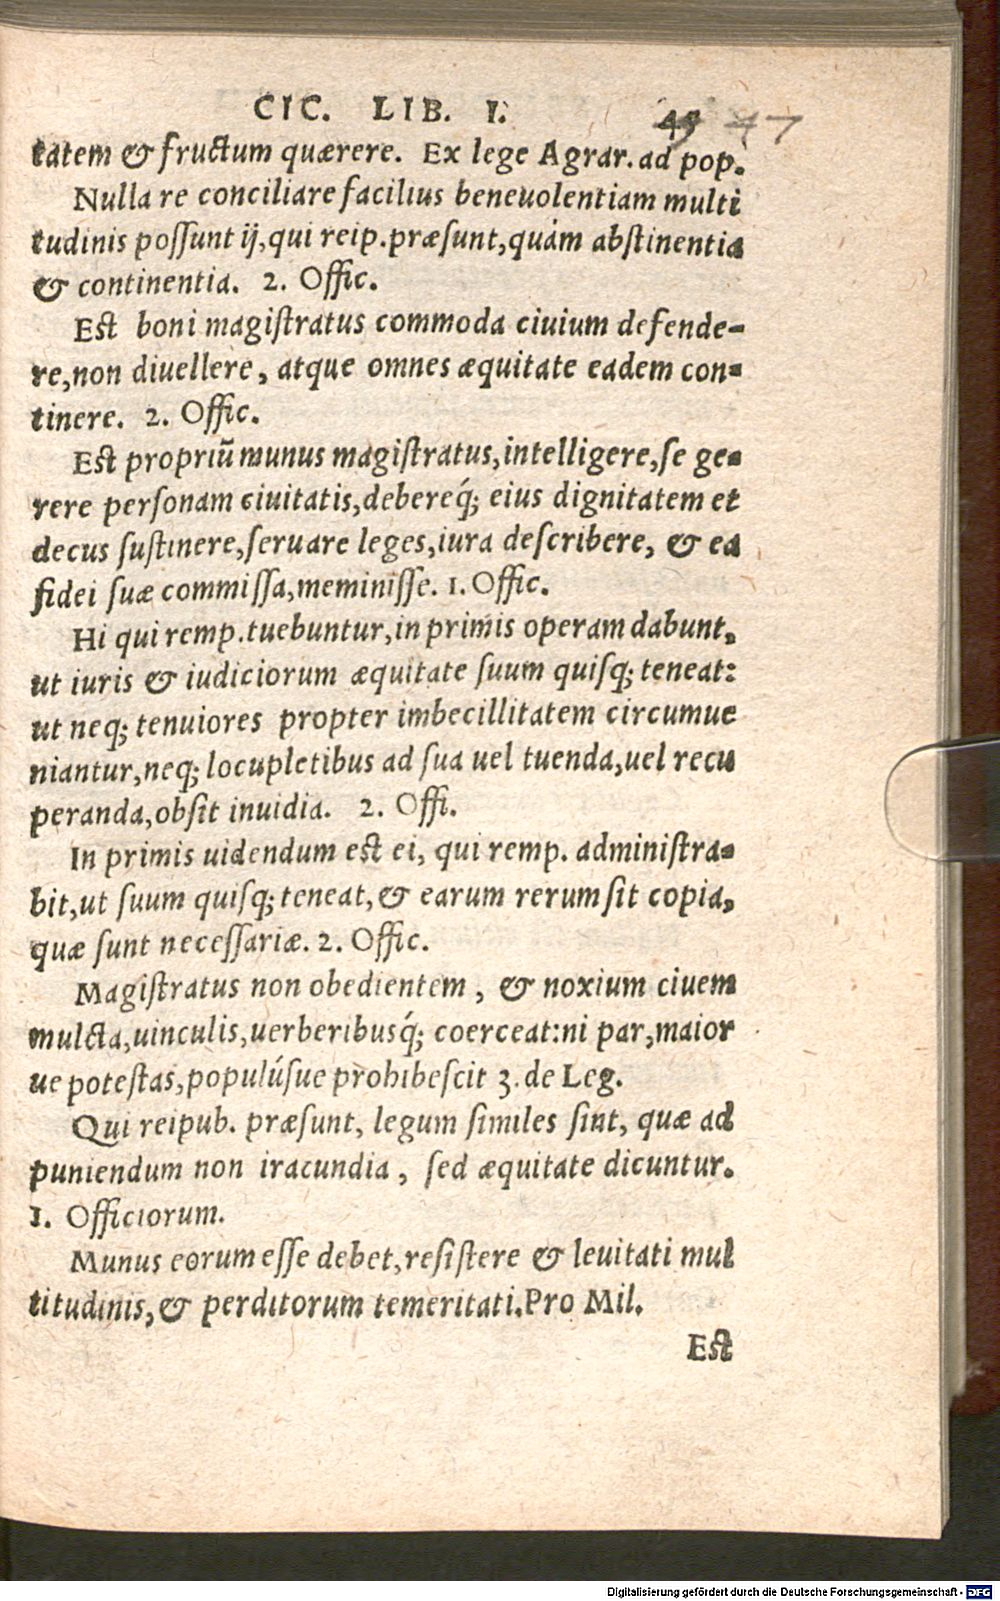 CIC. LIB. I.
49 47
tatem & fructum quærere. Ex lege Agrar. ad pop.
Nulla re conciliare facilius beneuolentiam multi
tudinis possunt ij, qui reip. præsunt, quàm abstinentia
& continentia. 2. Offic.
Est boni magistratus commoda ciuium defende-
re, non diuellere, atque omnes æquitate eadem con-
tinere. 2. Offic.
Est propriũ munus magistratus, intelligere, se ge-
rere personam ciuitatis, debereq́; eius dignitatem et
decus sustinere, seruare leges, iura describere, & ea
fidei suæ commissa, meminisse. 1. Offic.
Hi qui remp. tuebuntur, in primis operam dabunt,
ut iuris & iudiciorum æquitate suum quisq; teneat:
ut neq; tenuiores propter imbecillitatem circumue
niantur, neq; locupletibus ad sua uel tuenda, uel recu
peranda, obsit inuidia. 2. Offi.
In primis uidendum est ei, qui remp. administra-
bit, ut suum quisq; teneat, & earum rerum sit copia,
quæ sunt necessariæ. 2. Offic.
Magistratus non obedientem, & noxium ciuem
mulcta, uinculis, uerberibusq́; coerceat: ni par, maior
ue potestas, populúsue prohibescit 3. de Leg.
Qui reipub. præsunt, legum similes sint, quæ ad
puniendum non iracundia, sed æquitate dicuntur.
1. Officiorum.
Munus eorum esse debet, resistere & leuitati mul
titudinis, & perditorum temeritati. Pro Mil.
Est
Digitalisierung gefördert durch die Deutsche Forschungsgemeinschaft - DFG